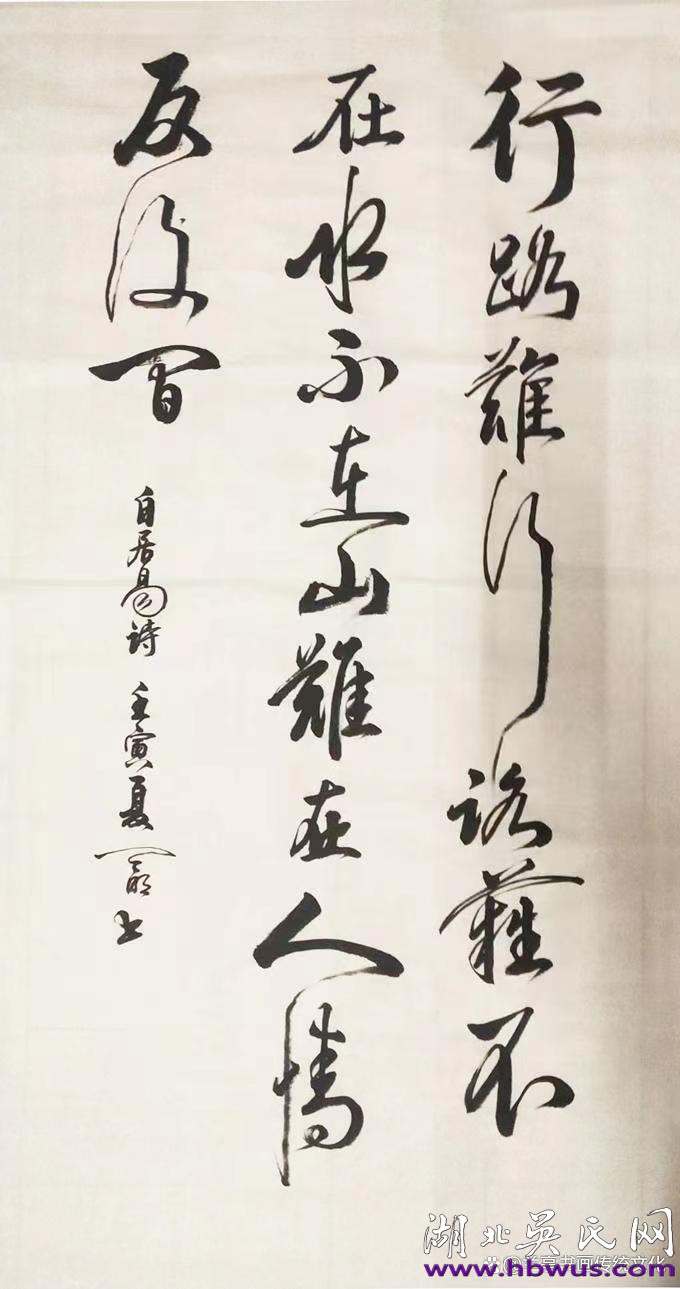 行路難行路難不
在水不在山難在人情
反復間
白居易詩 壬寅夏 書
湖北吳氏网
书画传统文化
www.hbwus.com